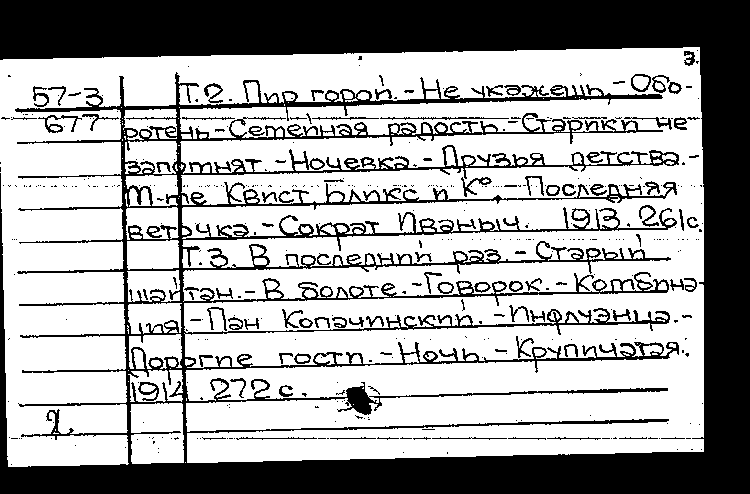 3.
57-3 Т.2. Пир горой. - Не укажешь, - Обо-
677 ротень - Семейная радость. - Старики не
запомнят. - Ночевка. - Друзья детства. -
М-me Квист, Бликс и К°, - Последняя
веточка. - Сократ Иваныч. 1913. 261с.
Т.3. В последний раз. - Старый
шайтан. - В болоте. - Говорок. - Комбина-
ция. - Пан Копачинский. - Инфлуэнца. -
Дорогие гости. - Ночь. - Крупичатая.
1914. 272с.